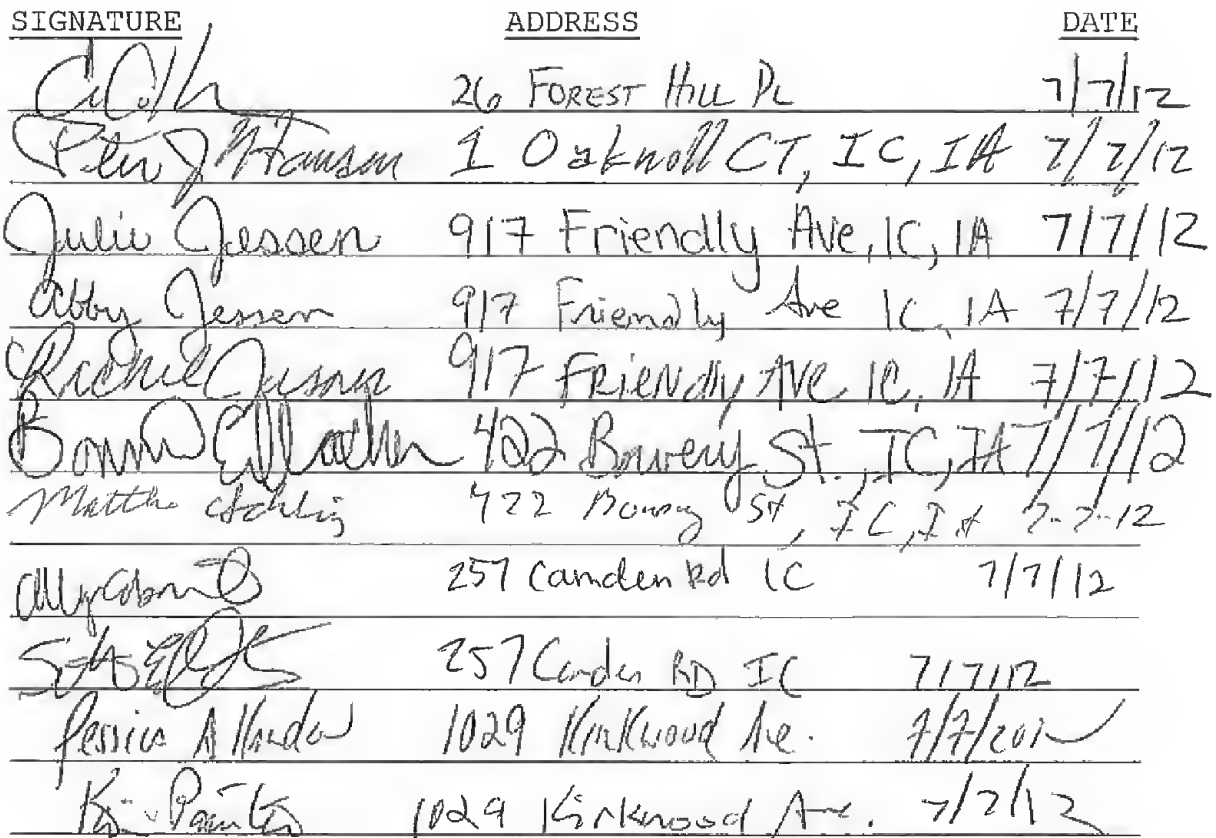 SIGNATURE ADDRESS DATE
26 FOREST HILL PL 7/7/12
Peter J Hansen 1 Oaknoll CT, IC, IA 7/7/12
Julie Jessen 917 Friendly Ave, IC, IA 7/7/12
Abby Jessen 917 Friendly Ave IC, IA 7/7/12
917 FRIENDly AVE IC, IA 7/7/12
422 Bowery St., IC, IA 7/7/12
422 Bowery St, IC, IA 7-7-12
257 Camden Rd IC 7/7/12
257 Camden RD IC 7/7/12
Jessica 1029 Kirkwood Ave. 7/7/2012
1029 Kirkwood Ave. 7/7/12